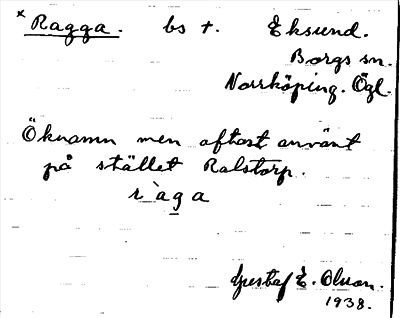 × Ragga. bs t. Eksund.
Borgs sn.
Norrköping. Ögl.
Öknamn men oftast använt
på stället Ralstorp.
r̀aga
Gustaf E. Olson.
1938.